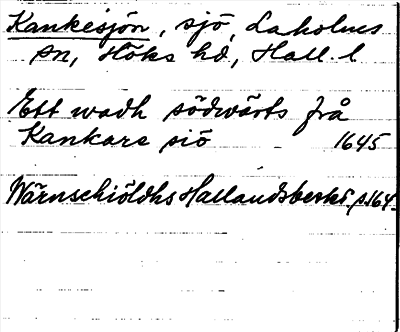 Kankesjön, sjö, Laholms
sn, Höks hd, Hall. l
Ett wadh södwärts frå
Kankare siö 1645
Wärnschiöldhs Hallandsbeskr. s. 164.